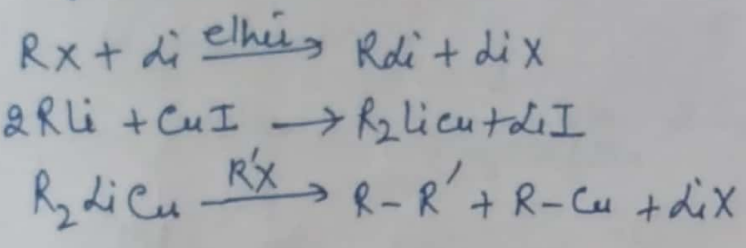 RX + Li ether→ RLi + LiX
2RLi + CuI → R₂LiCu + LiI
R₂LiCu R'X→ R-R' + R-Cu + LiX